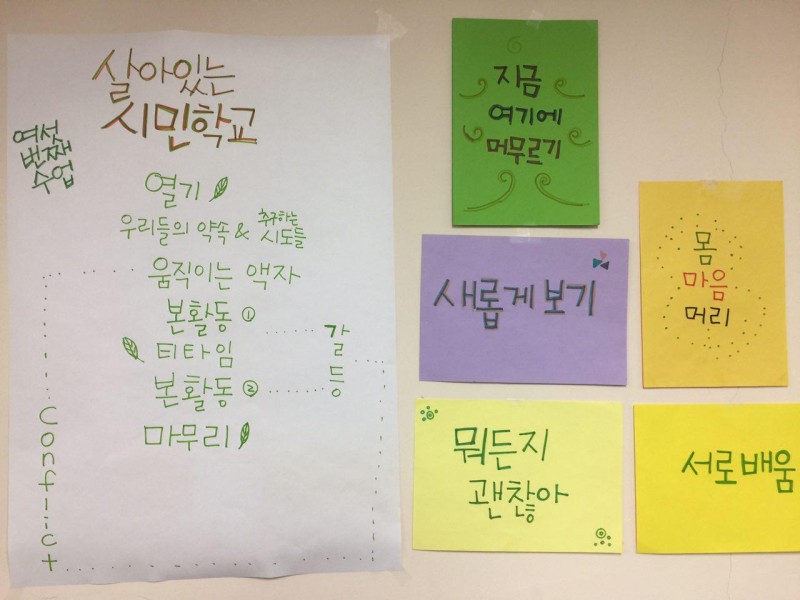 살아있는
시민학교
여섯
번째
수업
열기
우리들의 약속 & 추구하는
시도들
움직이는 액자
본활동 ①
티타임
본활동 ②
마무리
갈등
Conflict
지금
여기에
머무르기
새롭게 보기
몸
마음
머리
뭐든지
괜찮아
서로배움